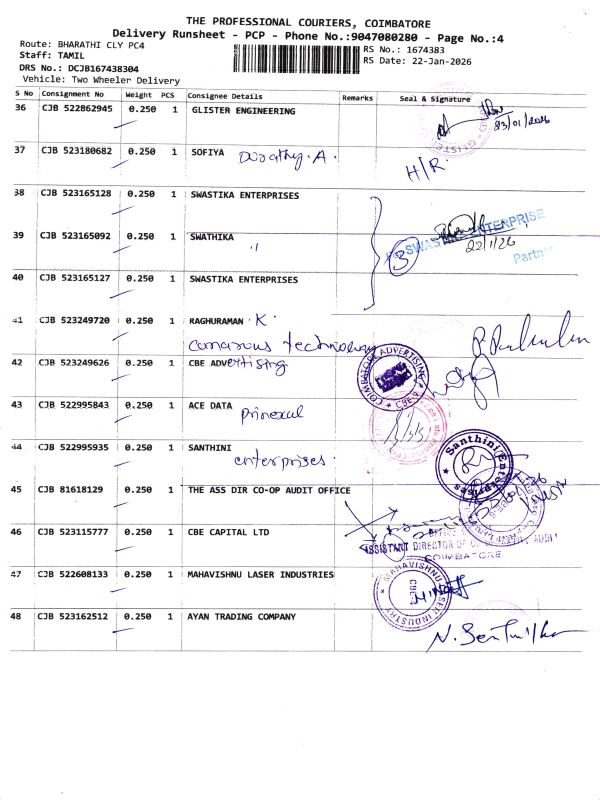 THE PROFESSIONAL COURIERS, COIMBATORE
Delivery Runsheet - PCP - Phone No.:9047080280 - Page No.:4
Route: BHARATHI CLY PC4
RS No.: 1674383
Staff: TAMIL
RS Date: 22-Jan-2026
DRS No.: DCJB167438304
Vehicle: Two Wheeler Delivery
S No Consignment No Weight PCS Consignee Details Remarks Seal & Signature
36 CJB 522862945 0.250 1 GLISTER ENGINEERING
23/01/2026
37 CJB 523180682 0.250 1 SOFIYA Dorathy. A.
H/R.
38 CJB 523165128 0.250 1 SWASTIKA ENTERPRISES
SWASTIKA ENTERPRISE
39 CJB 523165092 0.250 1 SWATHIKA 3 22/1/26
Partner
40 CJB 523165127 0.250 1 SWASTIKA ENTERPRISES
41 CJB 523249720 0.250 1 RAGHURAMAN K.
technology
42 CJB 523249626 0.250 1 CBE ADVertising
COIMBATORE ADVERTISING
CBE-9
43 CJB 522995843 0.250 1 ACE DATA
44 CJB 522995935 0.250 1 SANTHINI
enterprises.
Santhini Enterprises
45 CJB 81618129 0.250 1 THE ASS DIR CO-OP AUDIT OFFICE
46 CJB 523115777 0.250 1 CBE CAPITAL LTD
ASSISTANT DIRECTOR OF CO-OP AUDIT
COIMBATORE
47 CJB 522608133 0.250 1 MAHAVISHNU LASER INDUSTRIES
MAHAVISHNU LASER INDUSTRY
48 CJB 523162512 0.250 1 AYAN TRADING COMPANY